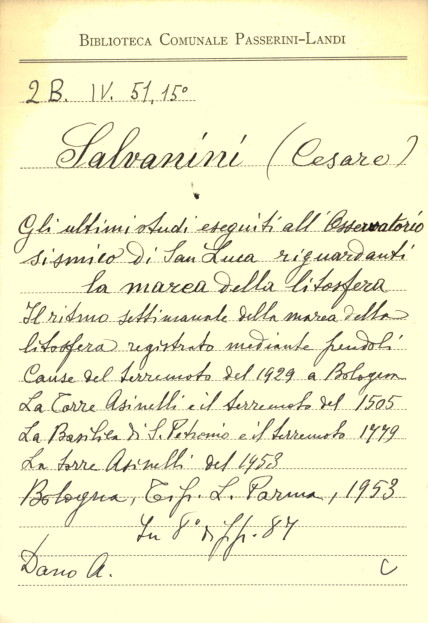 BIBLIOTECA COMUNALE PASSERINI-LANDI
2 B. IV. 51, 15°
Salvanini (Cesare)
Gli ultimi studi eseguiti all'Osservatorio
sismico di San Luca riguardanti
la marea della litosfera
Il ritmo settimanale della marea della
litosfera registrato mediante pendoli
Cause del terremoto del 1929 a Bologna
La Torre Asinelli e il terremoto del 1505
La Basilica di S. Petronio e il terremoto 1779
La torre Asinelli del 1953
Bologna, Tip. L. Parma, 1953
In 8° di pp. 87
Dano A. C